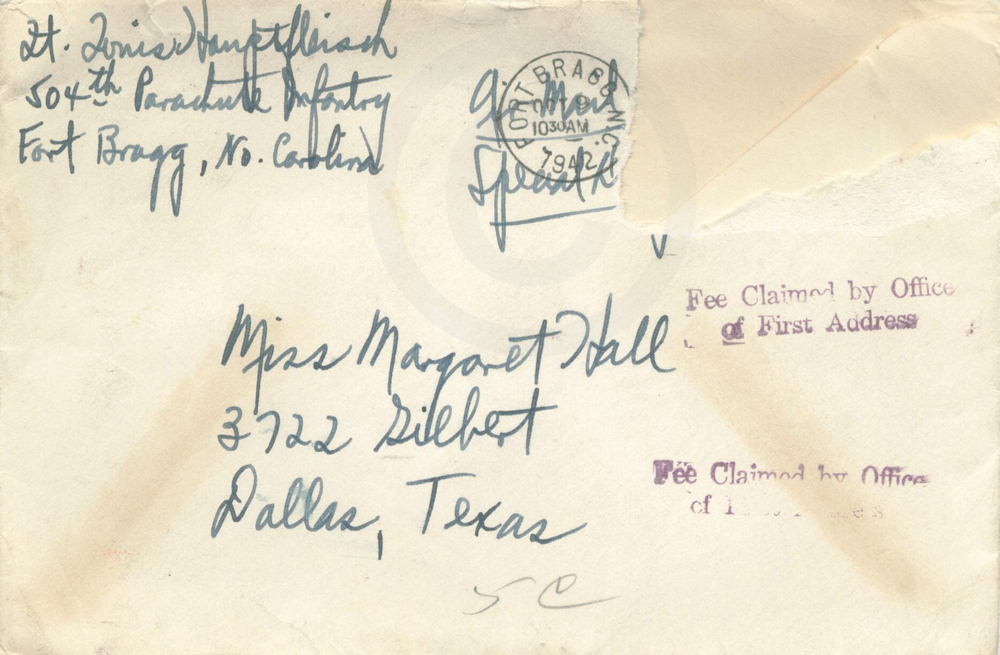 Lt. Louis Hauptfleisch
504th Parachute Infantry
Fort Bragg, No. Carolina
Air Mail
Special
FORT BRAGG N.C.
OCT
1030AM
1942
V
Fee Claimed by Office
of First Address
Miss Margaret Hall
3722 Gilbert
Dallas, Texas
Fee Claimed by Office
of
5 C